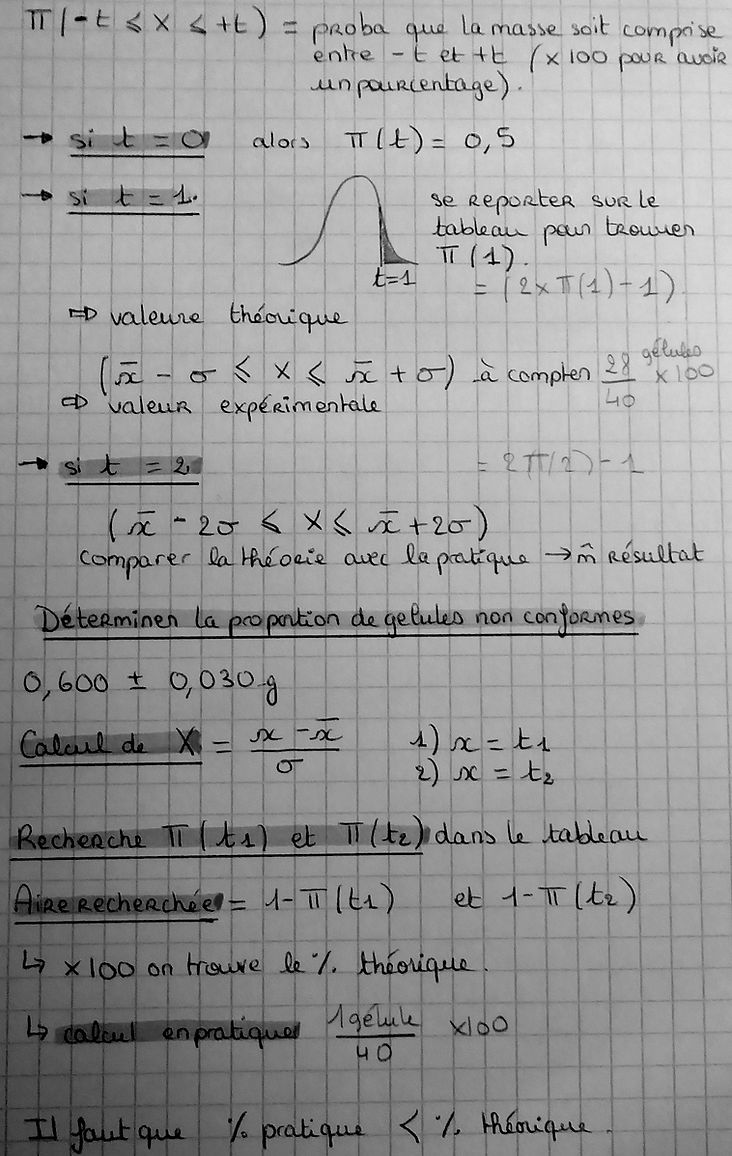 π(-t ⩽ X ⩽ +t) = proba que la masse soit comprise
entre -t et +t (x100 pour avoir
un pourcentage).
→ si t = 0 alors π(t) = 0,5
→ si t = 1.
se reporter sur le
tableau pour trouver
π(1).
t=1
= (2xπ(1)-1)
⇨ valeure théorique
(x̄ - σ ⩽ X ⩽ x̄ + σ) à compter 28 gélules/40 x100
⇨ valeur expérimentale
→ si t = 2 = 2π(2)-1
(x̄ - 2σ ⩽ X ⩽ x̄ + 2σ)
comparer la théorie avec la pratique → m̂ résultat
Déterminer la proportion de gelules non conformes
0,600 ± 0,030 g
Calcul de X = x - x̄/σ 1) x = t1
2) x = t2
Recherche π(t1) et π(t2) dans le tableau
Aire recherchée = 1-π(t1) et 1-π(t2)
↳ x100 on trouve le % théorique.
↳ calcul en pratique 1 gélule/40 x100
Il faut que % pratique < % théorique.